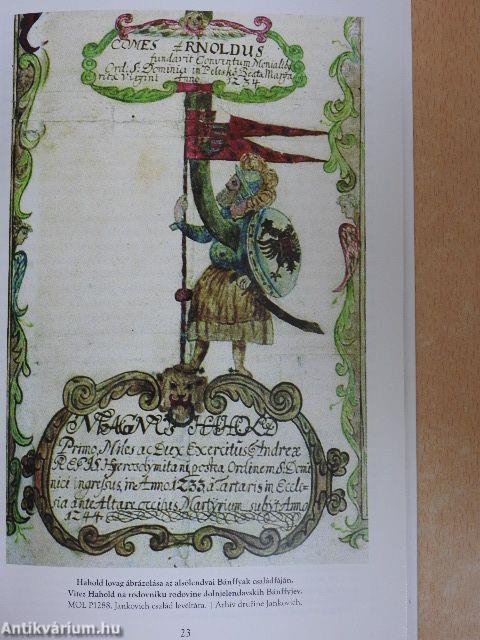 COMES ARNOLDUS
fundavit Conventum Monialiũ
Ord: S: Dominici in Beata Marga
ritæ Virgini Anno
1234
MAGNUS HAHOLD
Primo Miles ac Dux Exercitus Andreæ
REGIS Hierosolymitani, postea Ordinem S: Domi
nici ingressus, in Anno 1233, a Tartaris in Eccle-
sia ante Altare occisus Martyrium subyt Anno
1244
Hahold lovag ábrázolása az alsólendvai Bánffyak családfáján.
Vitez Hahold na rodovniku rodovine dolnjelendavskih Bánffyjev.
MOL P1288. Jankovich család levéltára. | Arhiv družine Jankovich.
23
Antikvárium.hu